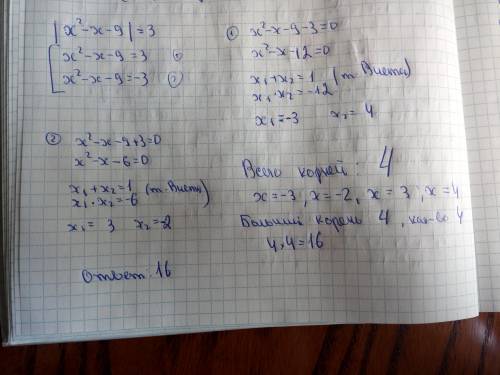 |x²-x-9|=3
[x²-x-9=3 ①
x²-x-9=-3 ②
① x²-x-9-3=0
x²-x-12=0
x₁+x₂=1 (т. Виета)
x₁·x₂=-12
x₁=-3 x₂=4
② x²-x-9+3=0
x²-x-6=0
x₁+x₂=1 (т. Виета)
x₁·x₂=-6
x₁=3 x₂=-2
Ответ: 16
Всего корней: 4
x=-3, x=-2, x=3, x=4
Больший корень 4, кол-во 4
4·4=16